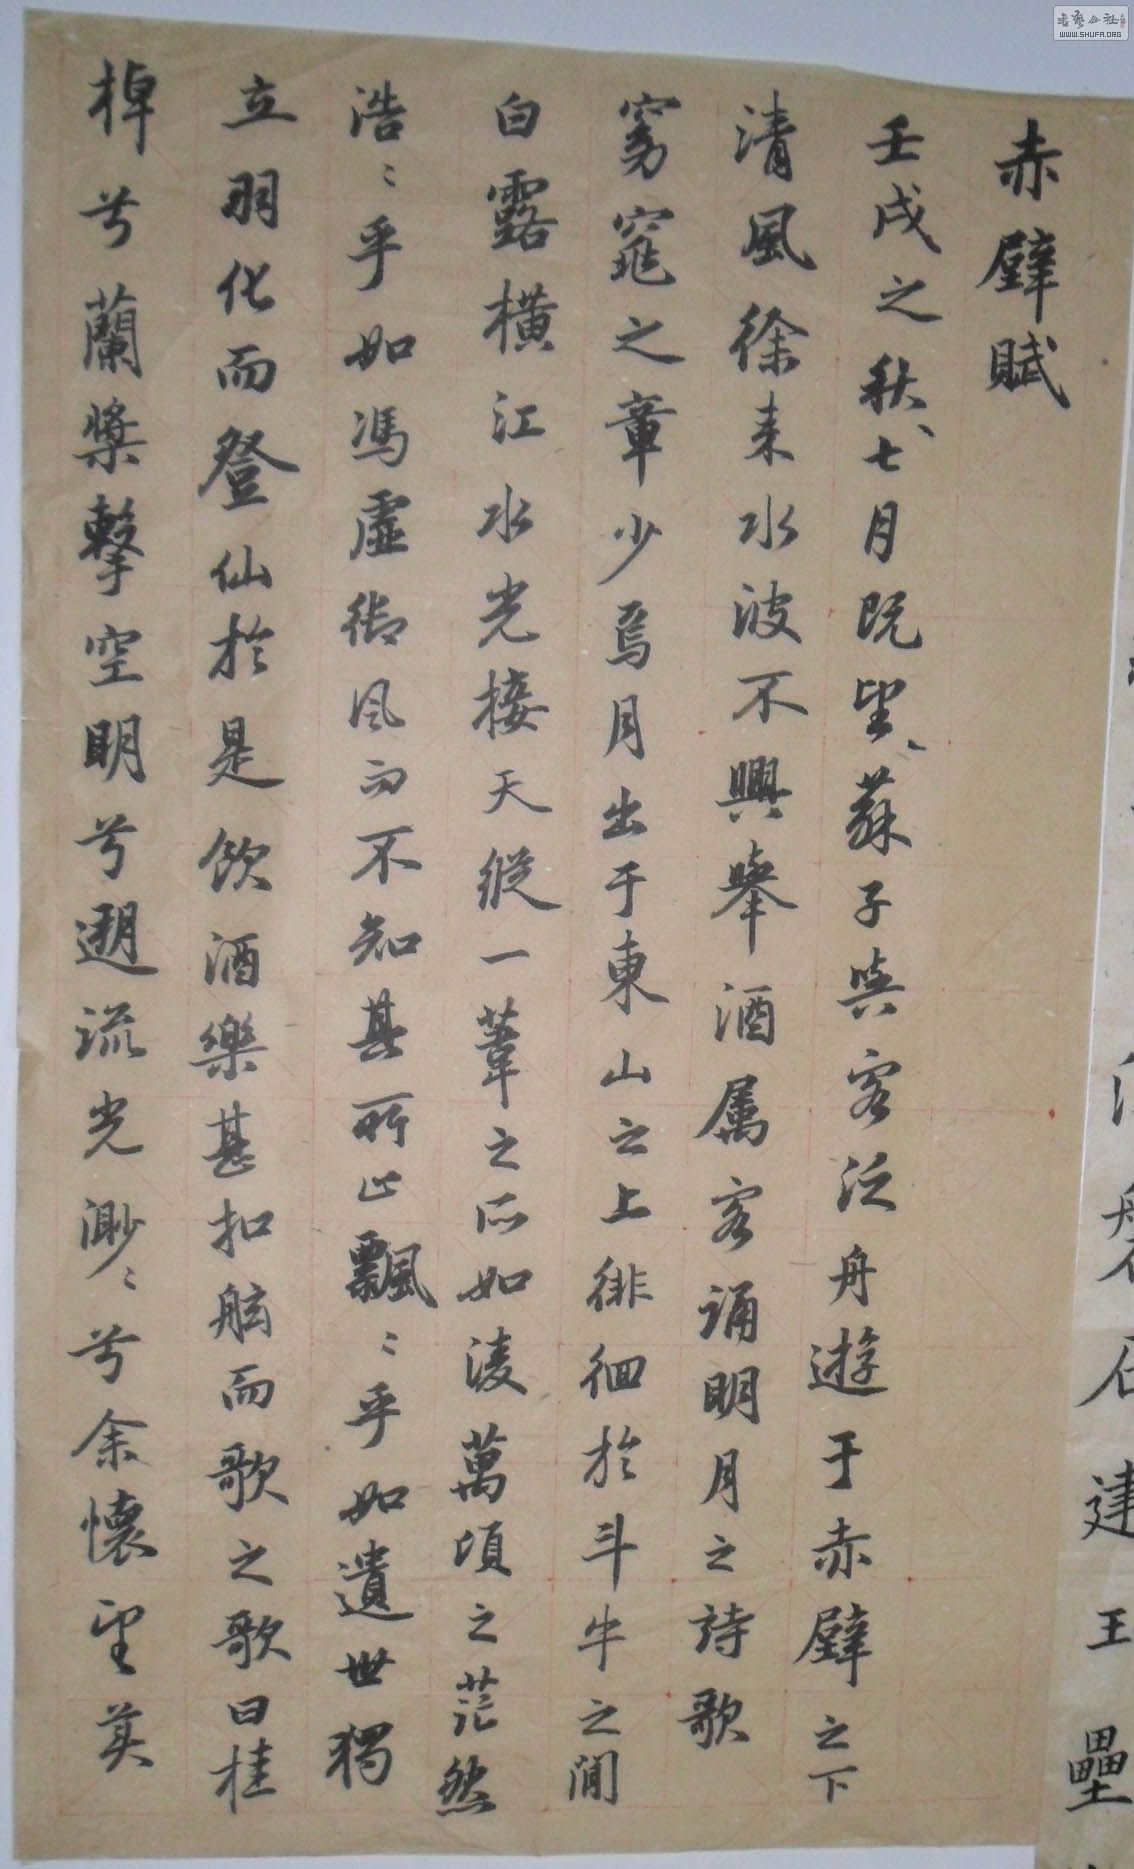 赤壁賦
壬戌之秋、七月既望、蘇子與客泛舟遊于赤壁之下
清風徐来水波不興舉酒属客誦明月之詩歌
窈窕之章少焉月出于東山之上徘徊於斗牛之間
白露横江水光接天縱一葦之所如淩萬頃之茫然
浩〻乎如馮虛御风而不知其所止飄〻乎如遺世獨
立羽化而登仙於是飲酒樂甚扣舷而歌之歌曰桂
棹兮蘭槳擊空明兮遡流光渺〻兮余懷望美
建王壘
書藝公社
WWW.SHUFA.ORG